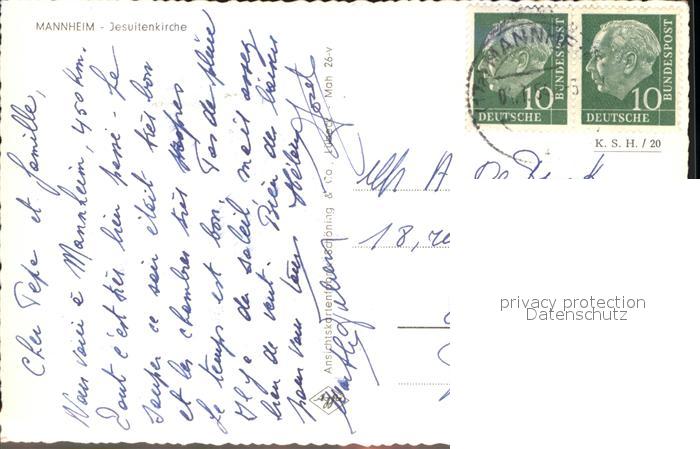 MANNHEIM - Jesuitenkirche
Cher Pépé et famille,
Nous voici à Mannheim, 450 km.
Tout c'est très bien passé - Le
souper ce soir était très bon
et les chambres très propres
Le temps est bon. Pas de pluie
Il y a du soleil mais assez
bien de vent. Bien des baisers
pour vous tous
Ansichtskartenfabrik Schöning & Co., Lübeck Mah 26-v
MANNHEIM
10
DEUTSCHE
BUNDESPOST
10
DEUTSCHE
BUNDESPOST
K. S. H. / 20
18,
privacy protection
Datenschutz